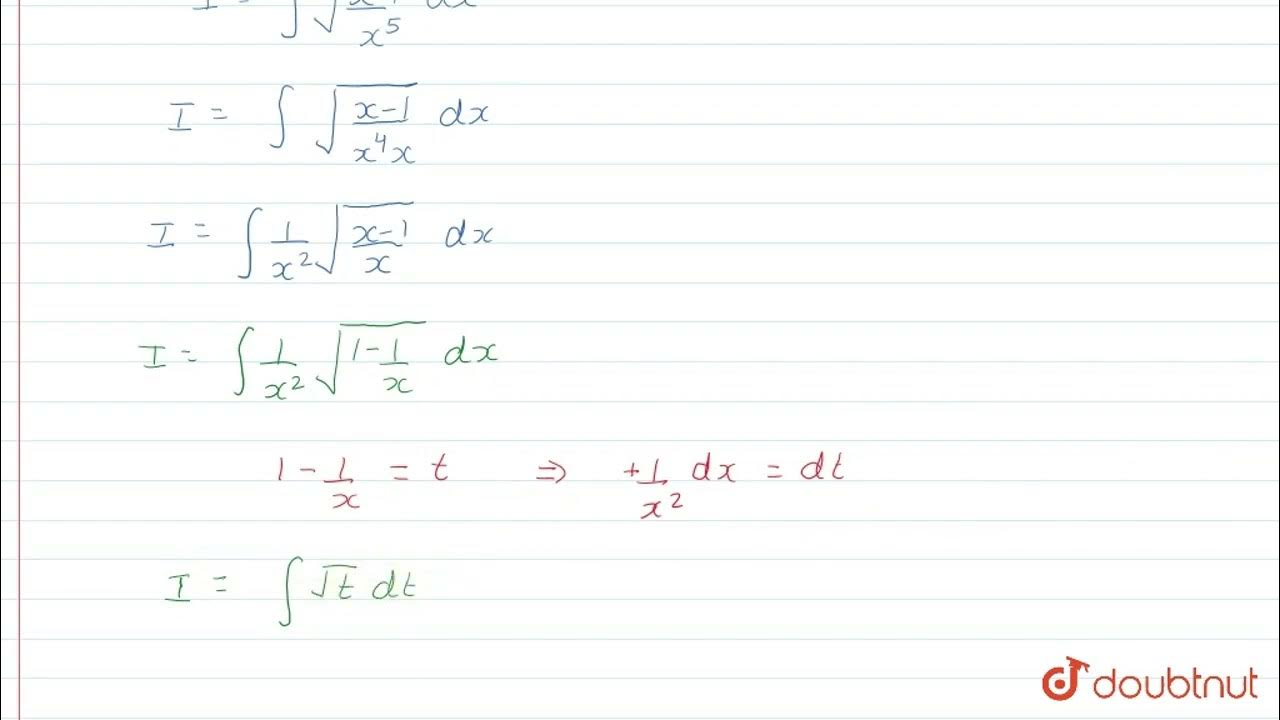 I = ∫ √(x-1/x⁵) dx
I = ∫ √(x-1/x⁴x) dx
I = ∫ 1/x² √(x-1/x) dx
I = ∫ 1/x² √(1-1/x) dx
1 - 1/x = t ⇒ +1/x² dx = dt
I = ∫ √t dt
doubtnut